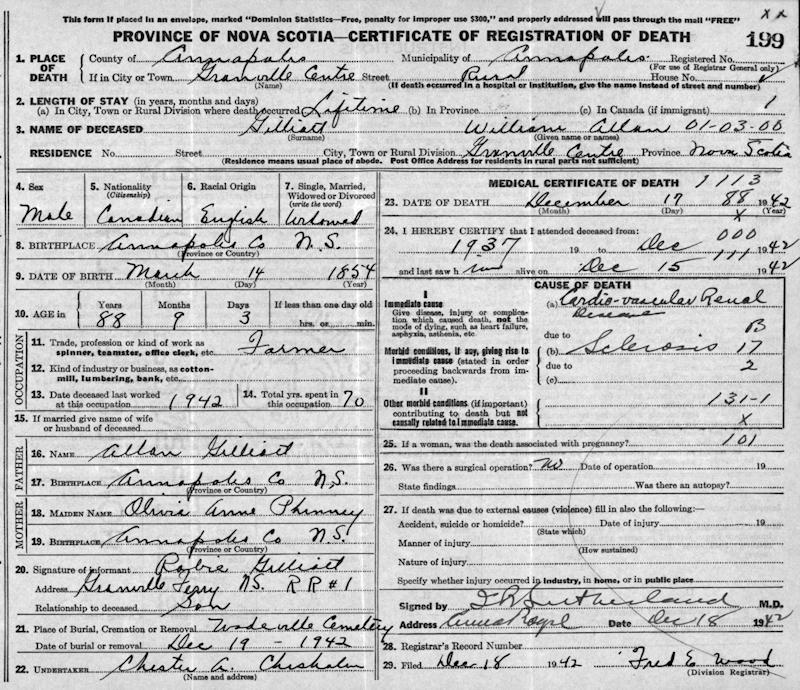 This form if placed in an envelope, marked "Dominion Statistics—Free, penalty for improper use $300," and properly addressed will pass through the mail "FREE"
x x
PROVINCE OF NOVA SCOTIA—CERTIFICATE OF REGISTRATION OF DEATH
199
1. PLACE OF DEATH County of Annapolis Municipality of Annapolis Registered No.
(For use of Registrar General only)
If in City or Town Granville Centre Street Rural House No.
(Name) (If death occurred in a hospital or institution, give the name instead of street and number)
2. LENGTH OF STAY (in years, months and days)
(a) In City, Town or Rural Division where death occurred Lifetime (b) In Province (c) In Canada (if immigrant) 1
3. NAME OF DECEASED Gilliatt William Allan 01-03-00
(Surname) (Given name or names)
RESIDENCE No. Street City, Town or Rural Division Granville Centre Province Nova Scotia
(Residence means usual place of abode. Post Office Address for residents in rural parts not sufficient)
4. Sex Male
5. Nationality (Citizenship) Canadian
6. Racial Origin English
7. Single, Married, Widowed or Divorced (write the word) Widowed
8. BIRTHPLACE Annapolis Co N.S.
(Province or Country)
9. DATE OF BIRTH March 14 1854
(Month) (Day) (Year)
10. AGE in Years Months Days If less than one day old
88 9 3 hrs. or min.
OCCUPATION
11. Trade, profession or kind of work as spinner, teamster, office clerk, etc. Farmer
12. Kind of industry or business, as cotton-mill, lumbering, bank, etc.
13. Date deceased last worked at this occupation 1942
14. Total yrs. spent in this occupation 70
15. If married give name of wife or husband of deceased
FATHER
16. NAME Allan Gilliatt
17. BIRTHPLACE Annapolis Co N.S.
(Province or Country)
MOTHER
18. MAIDEN NAME Olivia Anne Phinney
19. BIRTHPLACE Annapolis Co N.S.
(Province or Country)
20. Signature of informant Gilliatt
Address Granville Ferry N.S. R R #1
Relationship to deceased Son
21. Place of Burial, Cremation or Removal Wadeville Cemetery
Date of burial or removal Dec 19 - 1942
22. UNDERTAKER Chester A. Chisholm
(Name and address)
MEDICAL CERTIFICATE OF DEATH 1113
23. DATE OF DEATH December 17 88 1942
(Month) (Day) x (Year)
24. I HEREBY CERTIFY that I attended deceased from:
000
1937 19 to Dec 1942
111
and last saw him alive on Dec 15 1942
CAUSE OF DEATH
I
Immediate cause
Give disease, injury or complication which caused death, not the mode of dying, such as heart failure, asphyxia, asthenia, etc.
(a) Cardio-vascular Renal Disease
due to B
Morbid conditions, if any, giving rise to immediate cause (stated in order proceeding backwards from immediate cause).
(b) Sclerosis 17
due to 2
(c)
II
Other morbid conditions (if important) contributing to death but not causally related to immediate cause.
131-1
x
25. If a woman, was the death associated with pregnancy? 101
26. Was there a surgical operation? No Date of operation 19
State findings Was there an autopsy?
27. If death was due to external causes (violence) fill in also the following:—
Accident, suicide or homicide? Date of injury 19
(State which)
Manner of injury
(How sustained)
Nature of injury
Specify whether injury occurred in industry, in home, or in public place
Signed by Sutherland M.D.
Address Annap Royal Date Dec 18 1942
28. Registrar's Record Number
29. Filed Dec 18 1942 Fred E Wood
(Division Registrar)